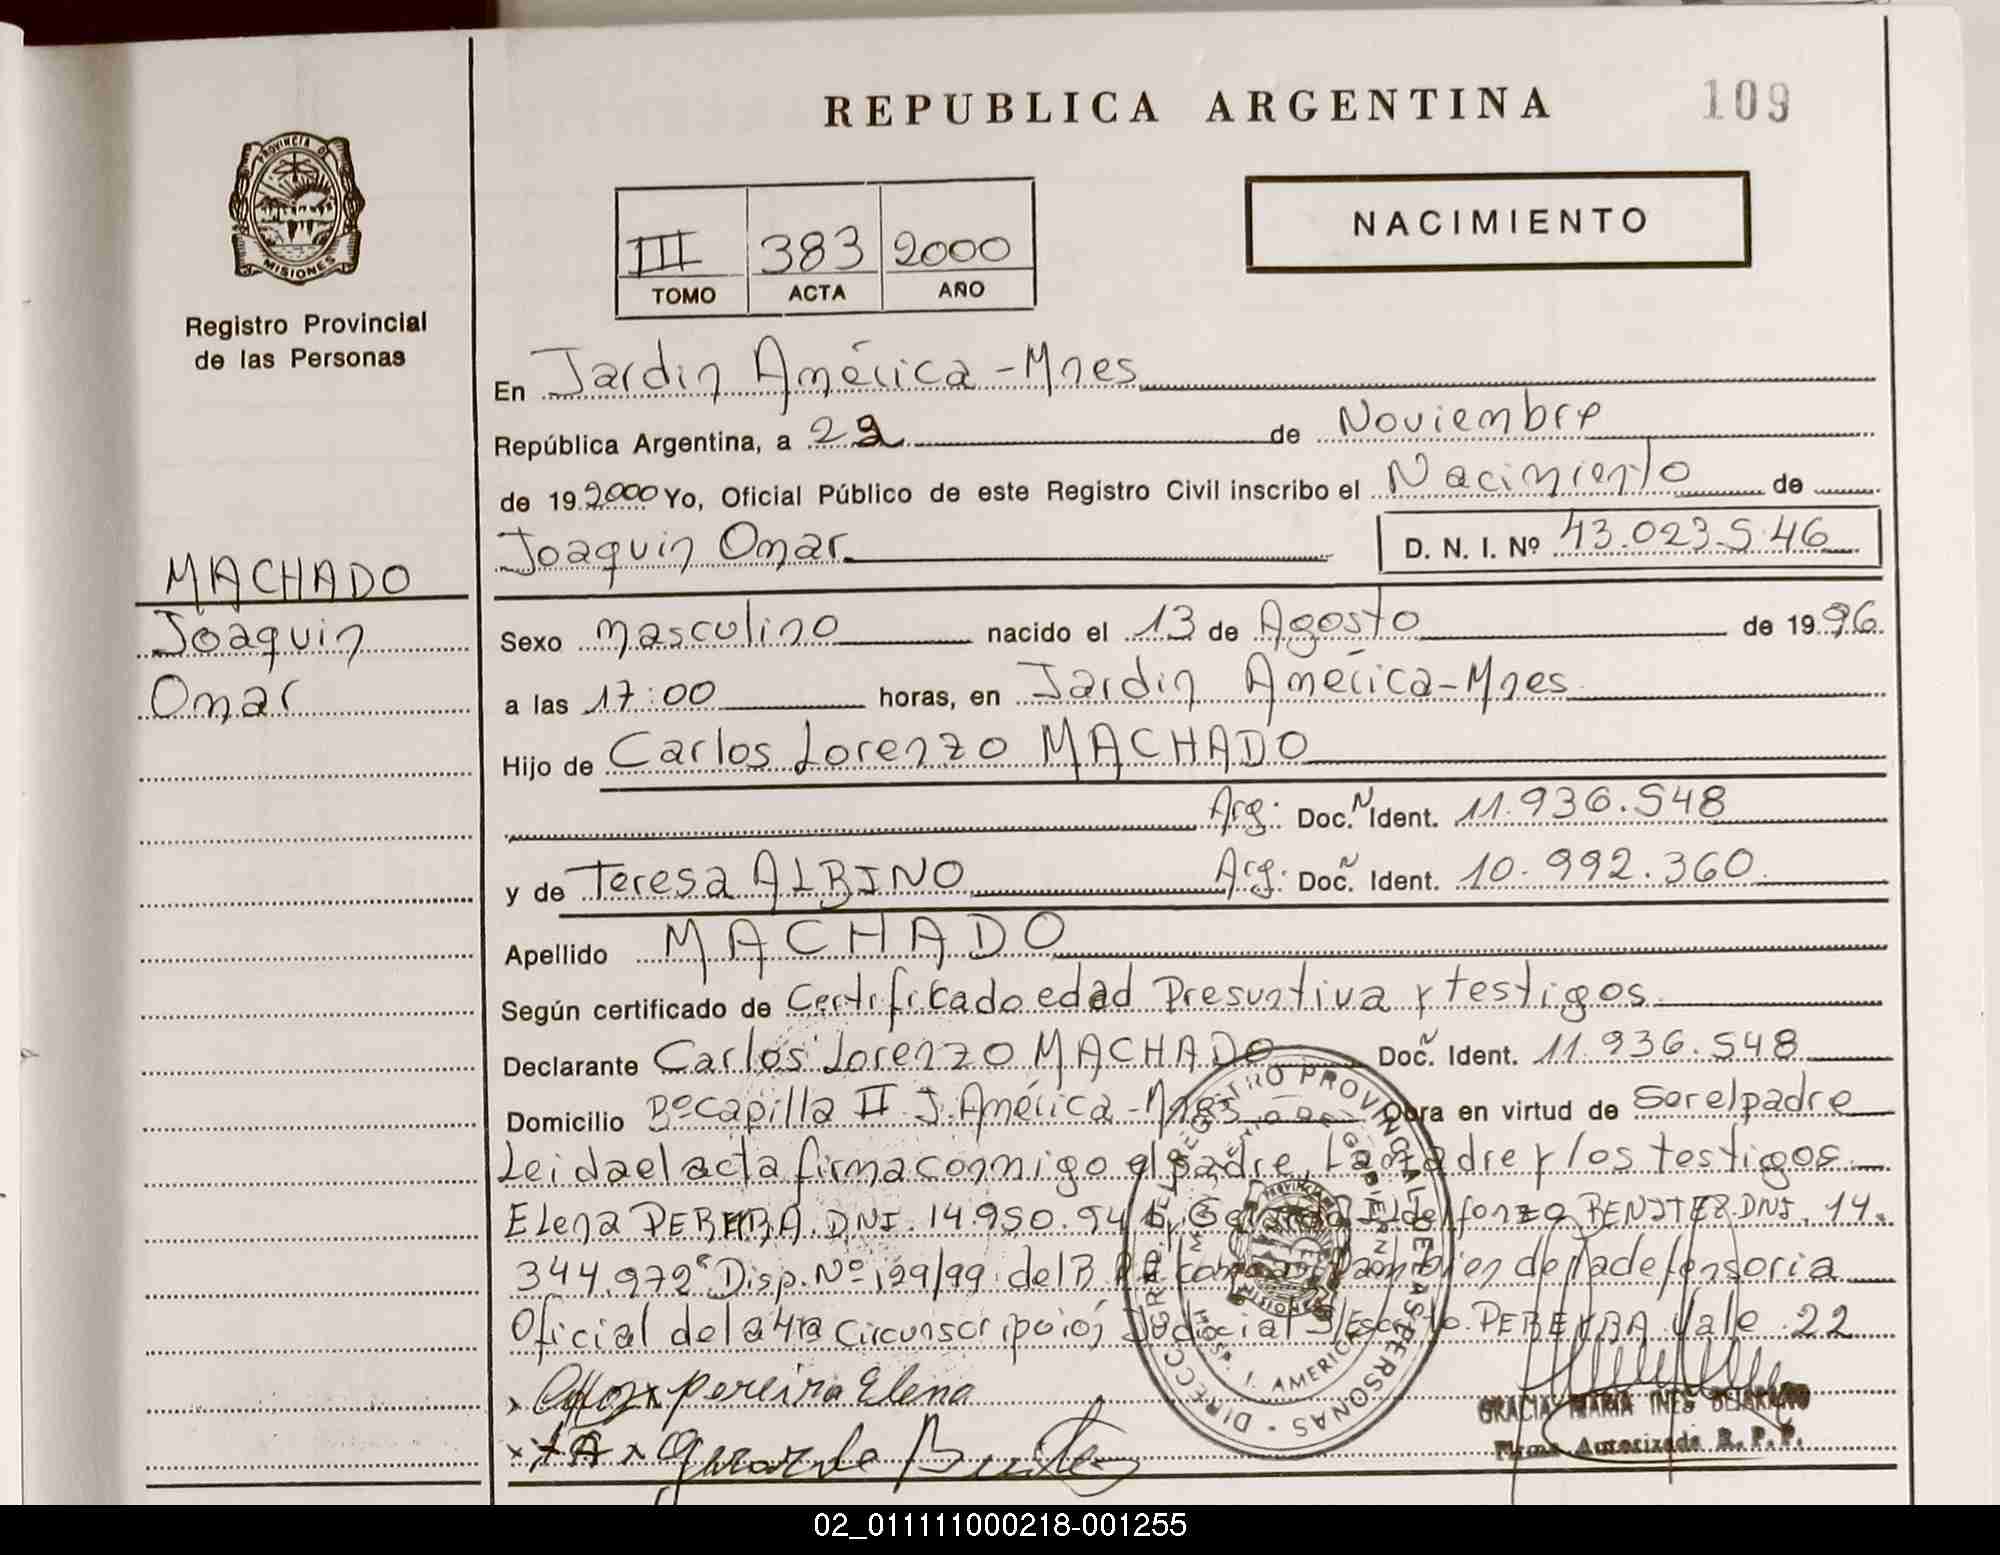 REPUBLICA ARGENTINA
109
PROVINCIA DE
MISIONES
Registro Provincial
de las Personas
III 383 2000
TOMO ACTA AÑO
NACIMIENTO
En Jardin América - Mnes
República Argentina, a 22 de Noviembre
de 19 2000 Yo, Oficial Público de este Registro Civil inscribo el Nacimiento de
Joaquin Omar D. N. I. Nº 43.023.546
MACHADO
Joaquin
Omar
Sexo masculino nacido el 13 de Agosto de 1996
a las 17:00 horas, en Jardin América - Mnes
Hijo de Carlos Lorenzo MACHADO
Arg. Doc. N Ident. 11.936.548
y de Teresa ALBINO Arg. Doc. N Ident. 10.992.360
Apellido MACHADO
Según certificado de Certificado edad Presuntiva y testigos
Declarante Carlos Lorenzo MACHADO Doc. N Ident. 11.936.548
Domicilio Bº Capilla II J. América - Mnes Obra en virtud de Ser el padre
Leida el acta firma conmigo el padre, La madre y los testigos
Elena PEREYRA DNI. 14.950. Ildelfonzo BENITEZ DNI. 14.
344.972 Disp. Nº 129/99 del de la defensoria
Oficial de la 4ta Circunscripción Judicial S/Escrito PEREYRA Vale 22
Pereira Elena
DIRECC. GRAL. DEL REGISTRO PROVINCIAL DE LAS PERSONAS
AMERICA
GRACIA MARIA INES BEJARANO
Firma Autorizada R. P. P.
02_011111000218-001255